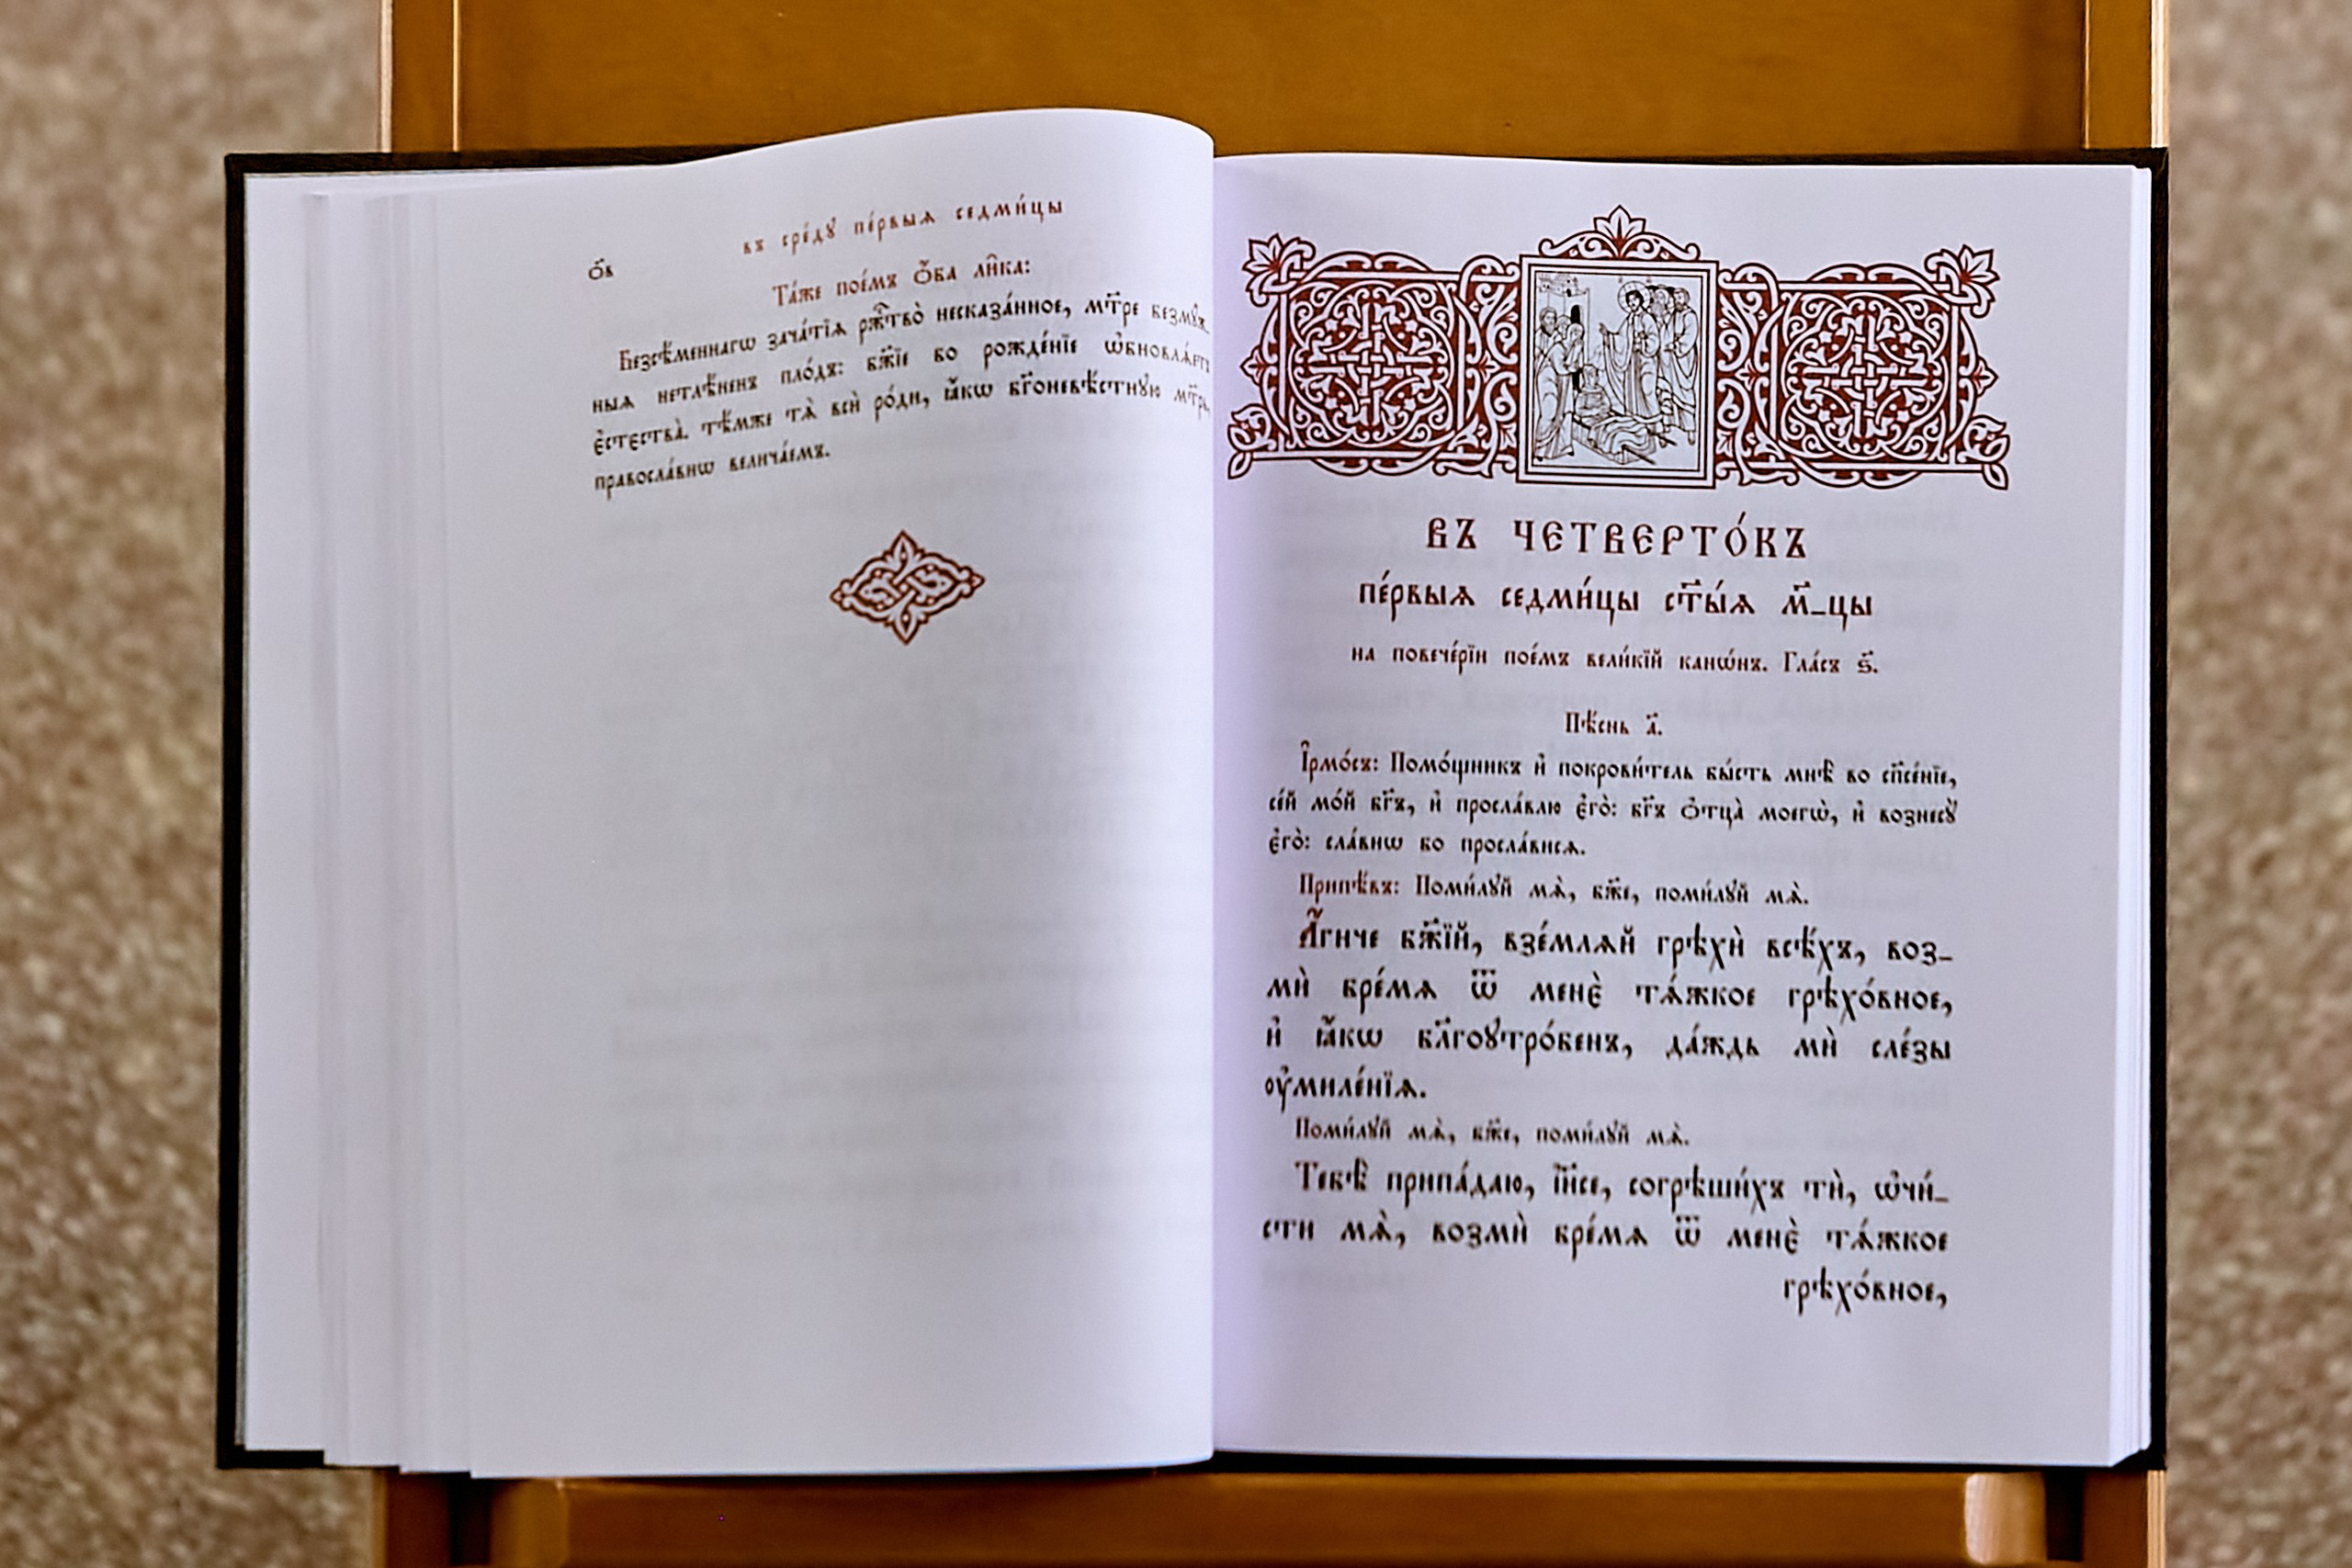 въ сре́дꙋ пе́рвыѧ седми́цы
о҃в
Та́же пое́мъ ѻ҆́ба ли̑ка:
Безсѣ́меннагѡ зача́тїѧ ржⷭ҇тво̀ несказа́нное, мт҃ре безмꙋ́ж
ныѧ нетлѣ́ненъ пло́дъ: бж҃їе бо рожде́нїе ѡ҆бновлѧ́етъ
є҆стества̀. тѣ́мже тѧ̀ всѝ ро́ди, ꙗ҆́кѡ бг҃оневѣ́стнꙋю мт҃рь,
правосла́внѡ велича́емъ.
ВЪ ЧЕТВЕРТО́КЪ
пе́рвыѧ седми́цы ст҃ы́ѧ м҃-цы
на повече́рїи пое́мъ вели́кїй канѡ́нъ. Гла́съ ѕ҃.
Пѣ́снь а҃.
І҆рмо́съ: Помо́щникъ и҆ покрови́тель бы́сть мнѣ̀ во сп҃се́нїе,
се́й мо́й бг҃ъ, и҆ просла́влю є҆го̀: бг҃ъ ѻ҆тца̀ моегѡ̀, и҆ вознесꙋ̀
є҆го̀: сла́внѡ бо просла́висѧ.
Припѣ́въ: Поми́лꙋй мѧ̀, бж҃е, поми́лꙋй мѧ̀.
А҆́гнче бж҃їй, взе́млѧй грѣхѝ всѣ́хъ, воз-
мѝ бре́мѧ ѿ менє̀ тѧ́жкое грѣхо́вное,
и҆ ꙗ҆́кѡ бл҃гоꙋтро́бенъ, да́ждь мѝ сле́зы
ᲂу҆миле́нїѧ.
Поми́лꙋй мѧ̀, бж҃е, поми́лꙋй мѧ̀.
Тебѣ̀ припа́даю, і҆и҃се, согрѣши́хъ тѝ, ѡ҆чи́-
сти мѧ̀, возмѝ бре́мѧ ѿ менє̀ тѧ́жкое
грѣхо́вное,